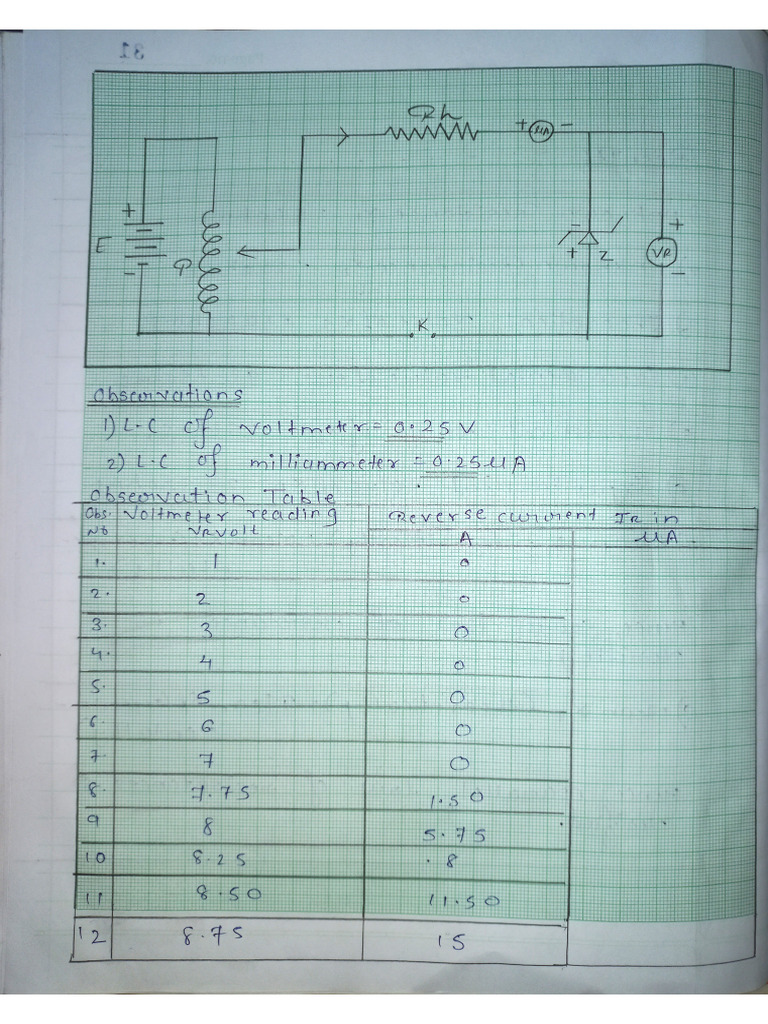 31
Rh
+ μA -
+
E
-
P
-
+ Z
+
VR
-
K
Observations
1) L.C of voltmeter = 0.25 V
2) L.C of milliammeter = 0.25 μA
Observation Table
Obs. No Voltmeter reading VR Volt Reverse current IR in
A μA.
1. 1 0
2. 2 0
3. 3 0
4. 4 0
5. 5 0
6. 6 0
7. 7 0
8. 7.75 1.50
9 8 5.75
10 8.25 .8
11 8.50 11.50
12 8.75 15